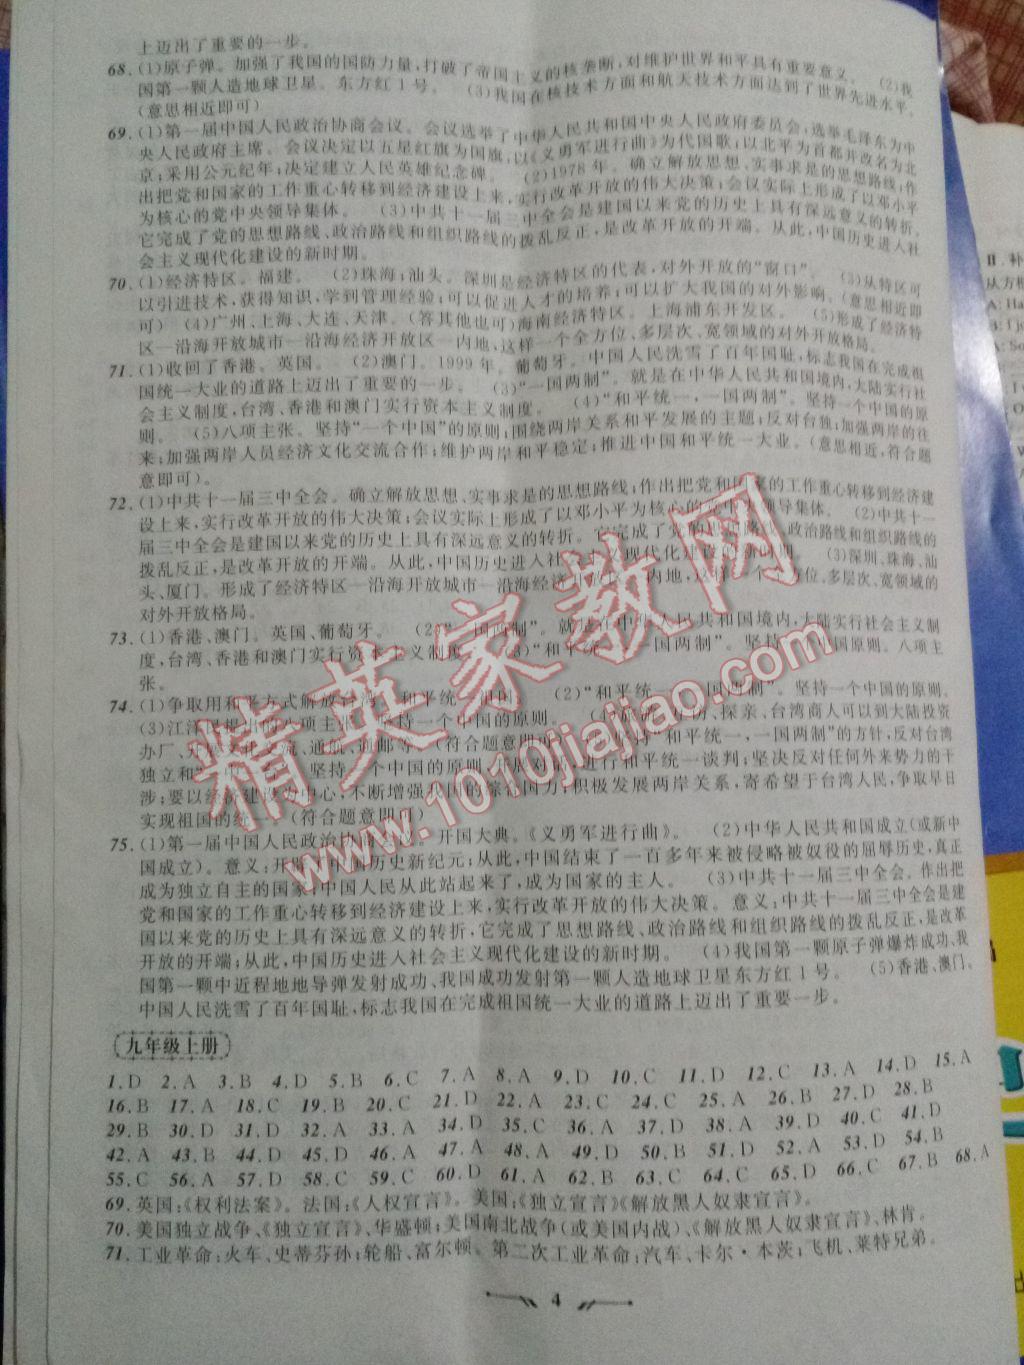 上迈出了重要的一步。
68.(1)原子弹。加强了我国的国防力量,打破了帝国主义的核垄断,对维护世界和平具有重要意义。 (2)我
国第一颗人造地球卫星。东方红1号。 (3)我国在核技术方面和航天技术方面达到了世界先进水平。
(意思相近即可)
69.(1)第一届中国人民政治协商会议。会议选举了中华人民共和国中央人民政府委员会,选举毛泽东为中
央人民政府主席。会议决定以五星红旗为国旗,以《义勇军进行曲》为代国歌;以北平为首都并改名为北
京;采用公元纪年;决定建立人民英雄纪念碑。 (2)1978年。确立解放思想、实事求是的思想路线;作
出把党和国家的工作重心转移到经济建设上来,实行改革开放的伟大决策;会议实际上形成了以邓小平
为核心的党中央领导集体。 (3)中共十一届三中全会是建国以来党的历史上具有深远意义的转折。
它完成了党的思想路线、政治路线和组织路线的拨乱反正,是改革开放的开端。从此,中国历史进入社
会主义现代化建设的新时期。
70.(1)经济特区。福建。 (2)珠海;汕头。深圳是经济特区的代表,对外开放的“窗口”。 (3)从特区可
以引进技术,获得知识,学到管理经验;可以促进人才的培养;可以扩大我国的对外影响。(意思相近即
可) (4)广州、上海、大连、天津。(答其他也可)海南经济特区。上海浦东开发区。 (5)形成了经济特
区—沿海开放城市—沿海经济开放区—内地,这样一个全方位、多层次、宽领域的对外开放格局。
71.(1)收回了香港、英国。 (2)澳门。1999年。葡萄牙。中国人民洗雪了百年国耻,标志我国在完成祖
国统一大业的道路上迈出了重要的一步。 (3)“一国两制”。就是在中华人民共和国境内,大陆实行社
会主义制度,台湾、香港和澳门实行资本主义制度。 (4)“和平统一,一国两制”。坚持一个中国的原
则。 (5)八项主张。坚持“一个中国”的原则;围绕两岸关系和平发展的主题;反对台独;加强两岸的往
来;加强两岸人员经济文化交流合作;维护两岸和平稳定;推进中国和平统一大业。(意思相近,符合题
意即可)。
72.(1)中共十一届三中全会。确立解放思想、实事求是的思想路线;作出把党和国家的工作重心转移到经济建
设上来,实行改革开放的伟大决策;会议实际上形成了以邓小平为核心的党中央领导集体。 (2)中共十一
届三中全会是建国以来党的历史上具有深远意义的转折。它完成了党的思想路线、政治路线和组织路线的
拨乱反正,是改革开放的开端。从此,中国历史进入社会主义现代化建设的新时期。 (3)深圳、珠海、汕
头、厦门。形成了经济特区—沿海开放城市—沿海经济开放区—内地,这样一个全方位、多层次、宽领域的
对外开放格局。
73.(1)香港、澳门。英国、葡萄牙。 (2)“一国两制”。就是在中华人民共和国境内,大陆实行社会主义制
度,台湾、香港和澳门实行资本主义制度。 (3)“和平统一,一国两制”。坚持一个中国原则。八项主
张。
74.(1)争取用和平方式解放台湾。和平统一祖国。 (2)“和平统一,一国两制”。坚持一个中国的原则。
(3)江泽民提出的八项主张。坚持一个中国的原则。 (4)旅游、 探亲、台湾商人可以到大陆投资
办厂、 文化交流、通航、通邮等。(符合题意即可) 和平统一,一国两制”的方针,反对台湾
独立和“ 坚持一个中国的原则 进行和平统一谈判;坚决反对任何外来势力的干
涉;要以经济建设为中心,不断增强我国的综合国力;积极发展两岸关系,寄希望于台湾人民,争取早日
实现祖国的统一。(符合题意即可)
75.(1)第一届中国人民政治协商会议。开国大典。《义勇军进行曲》。 (2)中华人民共和国成立(或新中
国成立)。意义:开辟了中国历史新纪元;从此,中国结束了一百多年来被侵略被奴役的屈辱历史,真正
成为独立自主的国家,中国人民从此站起来了,成为国家的主人。 (3)中共十一届三中全会。作出把
党和国家的工作重心转移到经济建设上来,实行改革开放的伟大决策。意义:中共十一届三中全会是建
国以来党的历史上具有深远意义的转折,它完成了思想路线、政治路线和组织路线的拨乱反正,是改革
开放的开端;从此,中国历史进入社会主义现代化建设的新时期。 (4)我国第一颗原子弹爆炸成功、我
国第一颗中近程地地导弹发射成功、我国成功发射第一颗人造地球卫星东方红1号。 (5)香港、澳门。
中国人民洗雪了百年国耻,标志我国在完成祖国统一大业的道路上迈出了重要一步。
九年级上册
1.D 2.A 3.B 4.D 5.B 6.C 7.A 8.A 9.D 10.C 11.D 12.C 13.A 14.D 15.A
16.B 17.A 18.C 19.B 20.C 21.D 22.A 23.C 24.C 25.A 26.B 27.D 28.B
29.B 30.D 31.D 32.A 33.A 34.D 35.C 36.A 37.D 38.A 39.D 40.C 41.D
42.A 43.B 44.D 45.D 46.A 47.A 48.A 49.D 50.B 51.D 52.A 53.D 54.B
55.C 56.A 57.D 58.C 59.C 60.D 61.A 62.B 63.C 64.C 65.D 66.C 67.B 68.A
69.英国:《权利法案》。法国:《人权宣言》。美国:《独立宣言》《解放黑人奴隶宣言》。
70.美国独立战争、《独立宣言》、华盛顿;美国南北战争(或美国内战)、《解放黑人奴隶宣言》、林肯。
71.工业革命:火车、史蒂芬孙;轮船、富尔顿。第二次工业革命:汽车、卡尔·本茨;飞机、莱特兄弟。
4
精英家教网
www.1010jiajiao.com
II.补
从方框
A: Ha